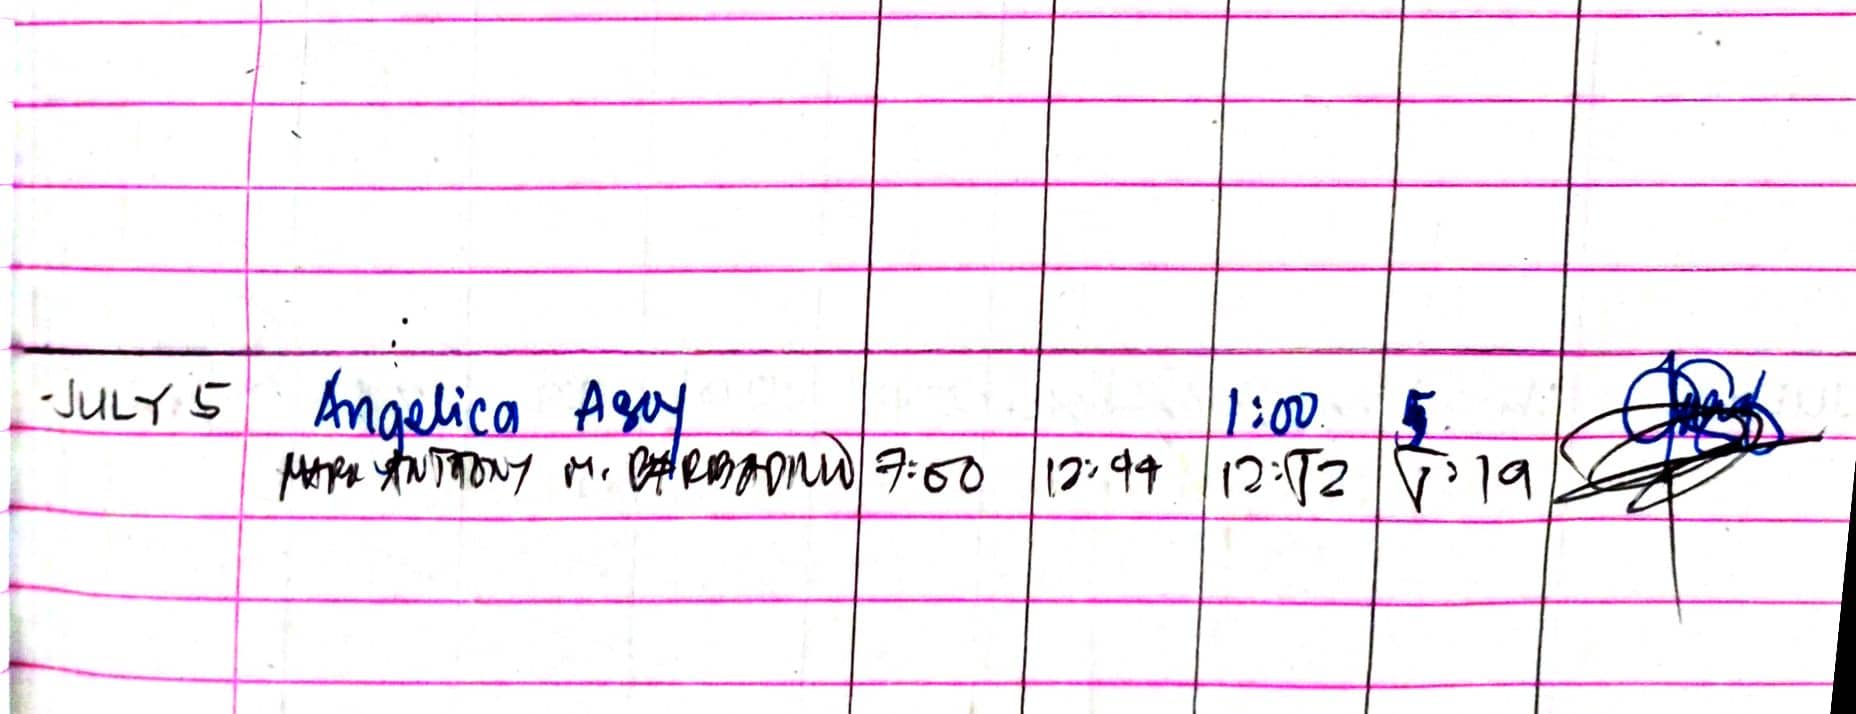 JULY 5 Angelica Agoy 1:00 5
MARK ANTHONY M. 7:50 12:44 12:52 5:19